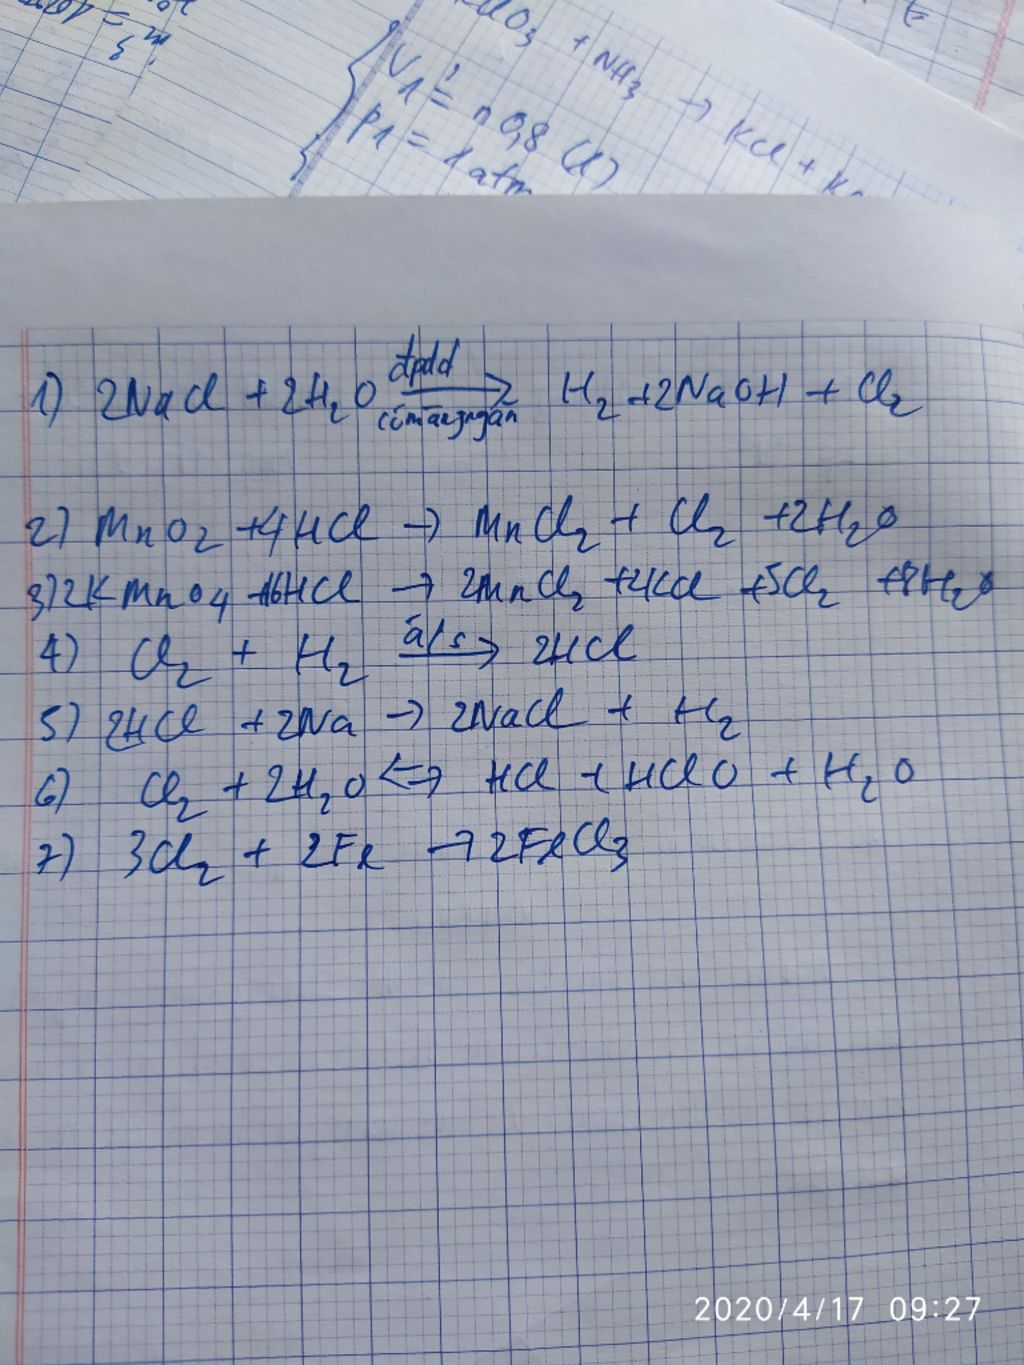 ClO3 + NH3 → KCl + K
V1 = 0,8 (l)
P1 = 1 atm
1) 2NaCl + 2H2O đpdd → H2 + 2NaOH + Cl2
có màng ngăn
2) MnO2 + 4HCl → MnCl2 + Cl2 + 2H2O
3) 2KMnO4 + 16HCl → 2MnCl2 + 4KCl + 5Cl2 + 8H2O
4) Cl2 + H2 a/s → 2HCl
5) 2HCl + 2Na → 2NaCl + H2
6) Cl2 + 2H2O ⇄ HCl + HClO + H2O
7) 3Cl2 + 2Fe → 2FeCl3
2020/4/17 09:27